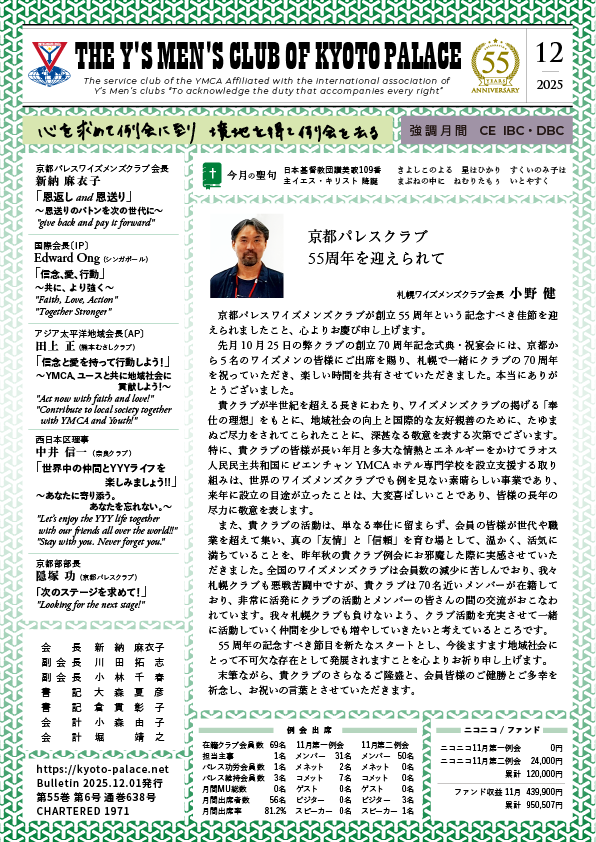 THE Y'S MEN'S CLUB OF KYOTO PALACE
The service club of the YMCA Affiliated with the international association of
Y's Men's clubs "To acknowledge the duty that accompanies every right"
55
YEARS
ANNIVERSARY
12
2025
心を求めて例会に到り 境地を得て例会を去る
強調月間 CE IBC・DBC
京都パレスワイズメンズクラブ会長
新納 麻衣子
「恩返し and 恩送り」
～恩送りのバトンを次の世代に～
"give back and pay it forward"
国際会長〔IP〕
Edward Ong (シンガポール)
「信念、愛、行動」
～共に、より強く～
"Faith, Love, Action"
"Together Stronger"
アジア太平洋地域会長〔AP〕
田上 正 (熊本むさしクラブ)
「信念と愛を持って行動しよう！」
～YMCA、ユースと共に地域社会に
貢献しよう！～
"Act now with faith and love!"
"Contribute to local society together
with YMCA and Youth!"
西日本区理事
中井 信一 (奈良クラブ)
「世界中の仲間とYYYライフを
楽しみましょう!!」
～あなたに寄り添う。
あなたを忘れない。～
"Let's enjoy the YYY life together
with our friends all over the world!!"
"Stay with you. Never forget you."
京都部部長
隠塚 功 (京都パレスクラブ)
「次のステージを求めて！」
"Looking for the next stage!"
会長 新納 麻衣子
副会長 川田 拓志
副会長 小林 千春
書記 大森 夏彦
書記 倉貫 彰子
会計 小森 由子
会計 堀 靖之
https://kyoto-palace.net
Bulletin 2025.12.01発行
第55巻 第6号 通巻638号
CHARTERED 1971
今月の聖句
日本基督教団讃美歌109番
主イエス・キリスト 降誕
きよしこのよる 星はひかり すくいのみ子は
まぶねの中に ねむりたもう いとやすく
京都パレスクラブ
55周年を迎えられて
札幌ワイズメンズクラブ会長 小野 健
京都パレスワイズメンズクラブが創立55周年という記念すべき佳節を迎
えられましたこと、心よりお慶び申し上げます。
先月10月25日の弊クラブの創立70周年記念式典・祝宴会には、京都か
ら5名のワイズメンの皆様にご出席を賜り、札幌で一緒にクラブの70周年
を祝っていただき、楽しい時間を共有させていただきました。本当にありが
とうございました。
貴クラブが半世紀を超える長きにわたり、ワイズメンズクラブの掲げる「奉
仕の理想」をもとに、地域社会の向上と国際的な友好親善のために、たゆま
ぬご尽力をされてこられたことに、深甚なる敬意を表する次第でございます。
特に、貴クラブの皆様が長い年月と多大な情熱とエネルギーをかけてラオス
人民民主共和国にビエンチャンYMCAホテル専門学校を設立支援する取り
組みは、世界のワイズメンズクラブでも例を見ない素晴らしい事業であり、
来年に設立の目途が立ったことは、大変喜ばしいことであり、皆様の長年の
尽力に敬意を表します。
また、貴クラブの活動は、単なる奉仕に留まらず、会員の皆様が世代や職
業を超えて集い、真の「友情」と「信頼」を育む場として、温かく、活気に
満ちていることを、昨年秋の貴クラブ例会にお邪魔した際に実感させていた
だきました。全国のワイズメンズクラブは会員数の減少に苦しんでおり、我々
札幌クラブも悪戦苦闘中ですが、貴クラブは70名近いメンバーが在籍して
おり、非常に活発にクラブの活動とメンバーの皆さんの間の交流がおこなわ
れています。我々札幌クラブも負けないよう、クラブ活動を充実させて一緒
に活動していく仲間を少しでも増やしていきたいと考えているところです。
55周年の記念すべき節目を新たなスタートとし、今後ますます地域社会に
とって不可欠な存在として発展されますことを心よりお祈り申し上げます。
末筆ながら、貴クラブのさらなるご隆盛と、会員皆様のご健勝とご多幸を
祈念し、お祝いの言葉とさせていただきます。
例会出席
在籍クラブ会員数 69名 11月第一例会 11月第二例会
担当主事 1名 メンバー 31名 メンバー 50名
パレス功労会員数 1名 メネット 2名 メネット 0名
パレス維持会員数 3名 コメット 7名 コメット 0名
月間MU総数 0名 ゲスト 0名 ゲスト 0名
月間出席者数 56名 ビジター 0名 ビジター 3名
月間出席率 81.2% スピーカー 0名 スピーカー 1名
ニコニコ / ファンド
ニコニコ11月第一例会 0円
ニコニコ11月第二例会 24,000円
累計 120,000円
ファンド収益 11月 439,900円
累計 950,507円